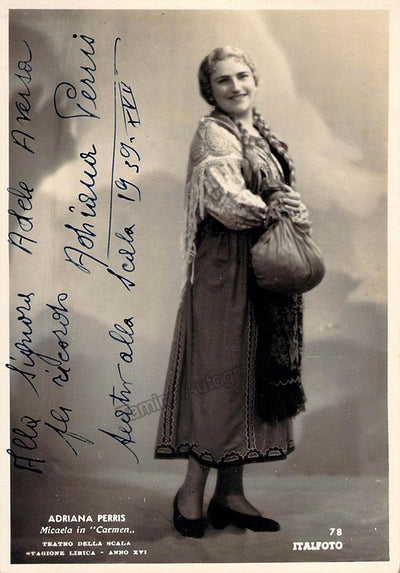 Alla Signora Adele Aversa
per ricordo Adriana Perris
Teatro alla Scala 1939-XVII
ADRIANA PERRIS
Micaela in "Carmen„
TEATRO DELLA SCALA
STAGIONE LIRICA - ANNO XVI
78
ITALFOTO
Tamino Autographs